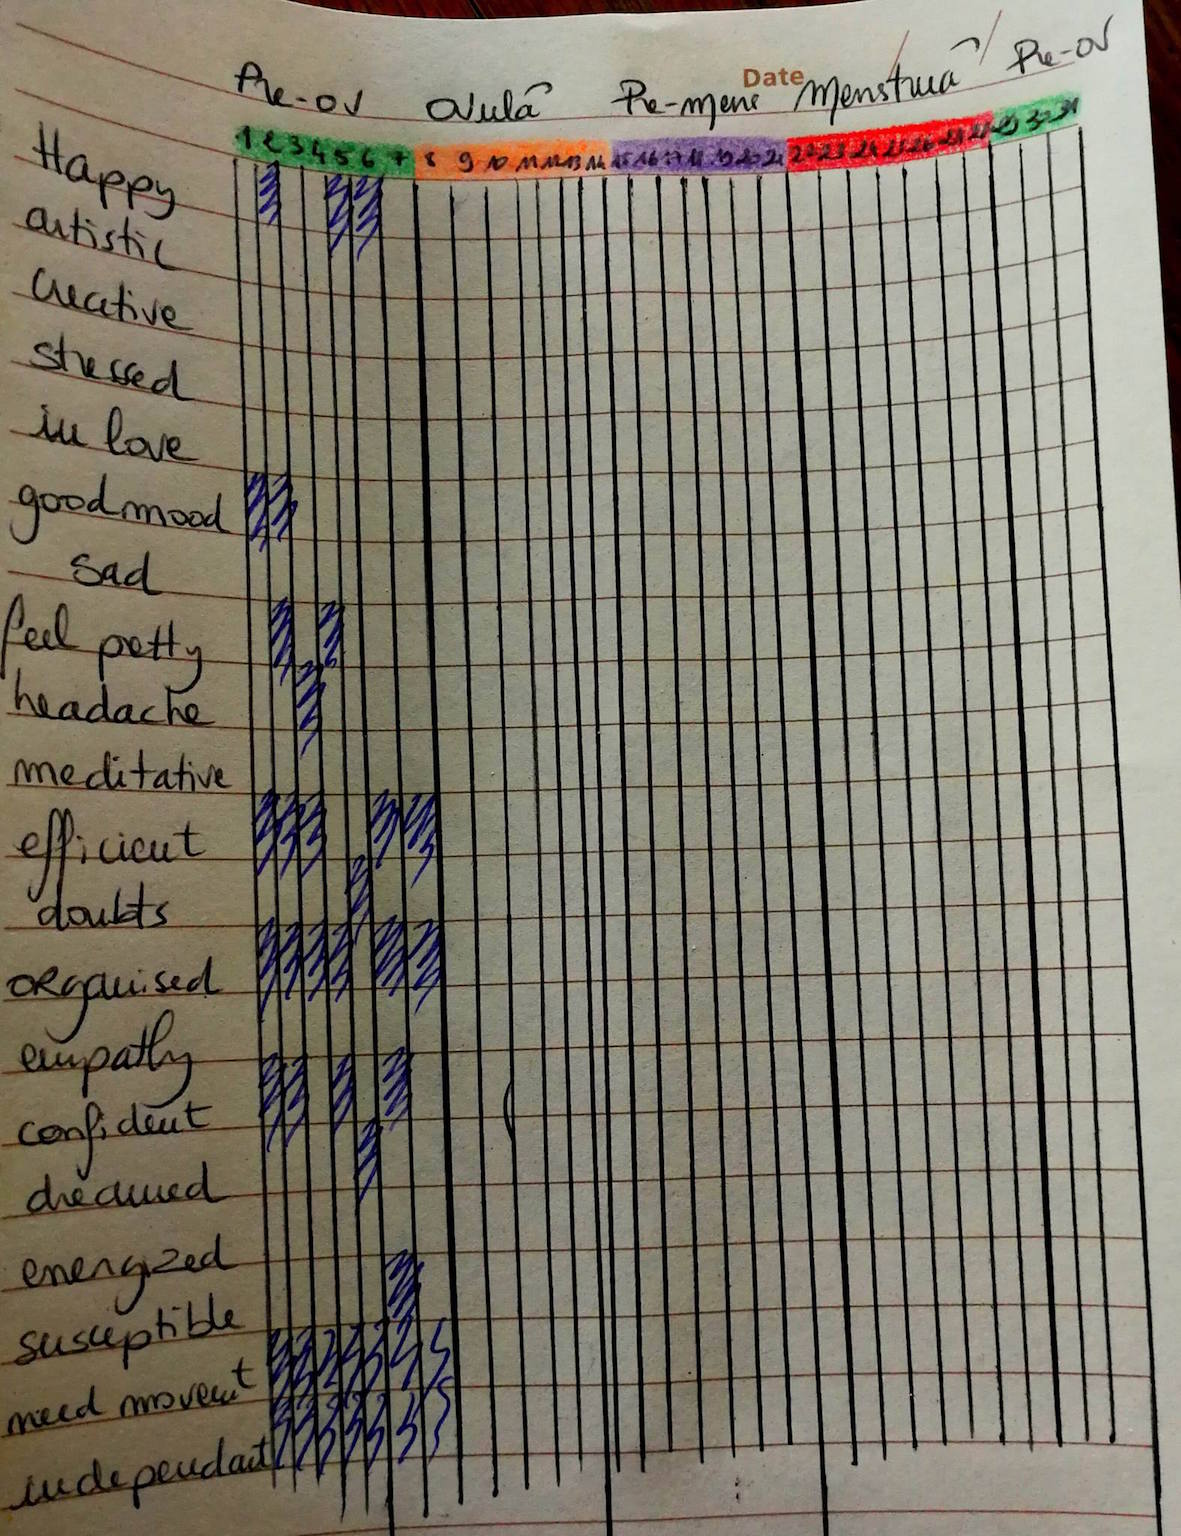 Date
Pre-ov ovulâ Pre-mens menstruâ Pre-ov
1 2 3 4 5 6 7 8 9 10 11 12 13 14 15 16 17 18 19 20 21 22 23 24 25 26 27 28 29 30 31
Happy
artistic
creative
stressed
in love
good mood
sad
feel pretty
headache
meditative
efficient
doubts
organised
empathy
confident
dreamed
energized
susceptible
need movemt
independant